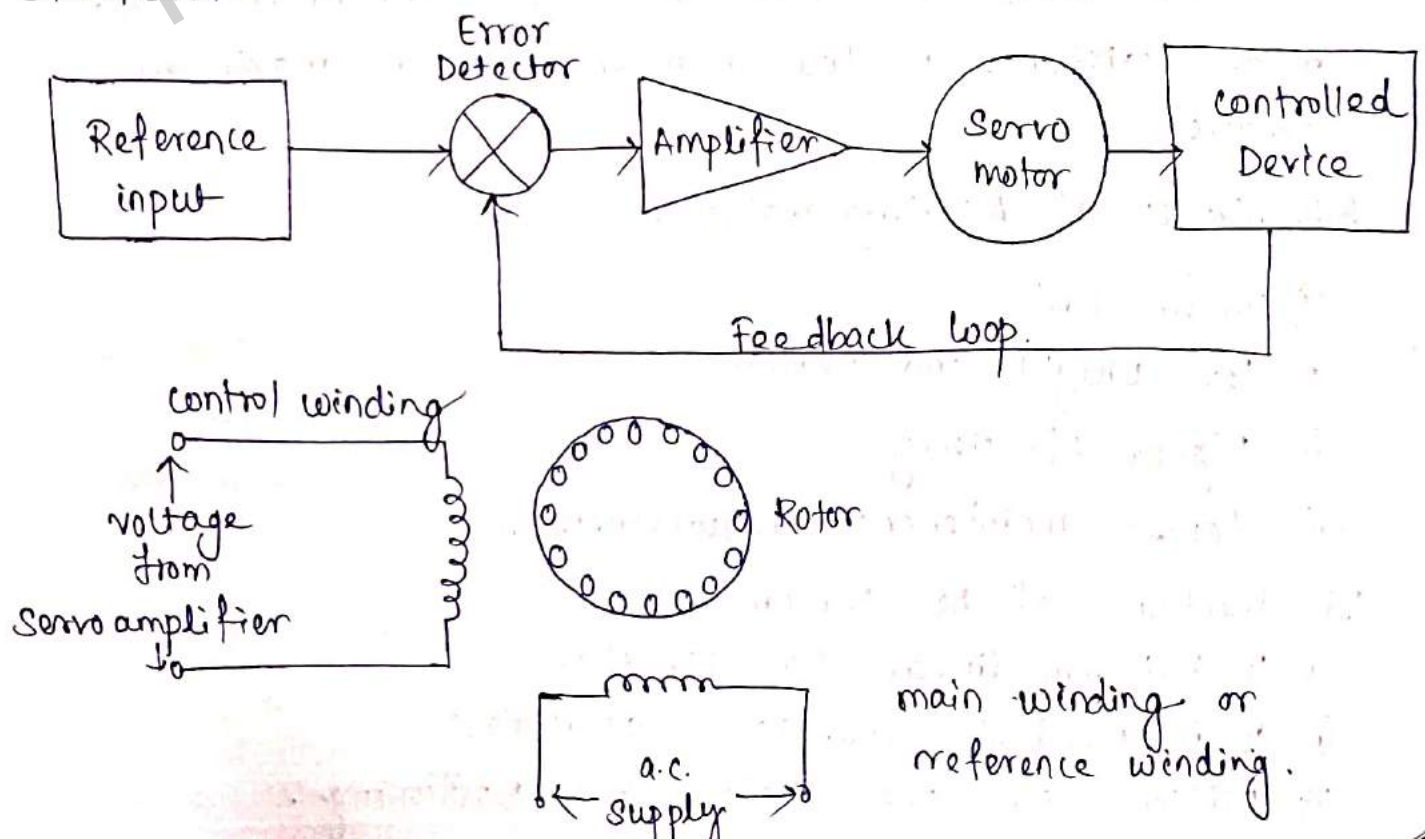 Error
Detector
Reference
input
Amplifier
Servo
motor
controlled
Device
Feedback loop.
control winding
voltage
from
Servo amplifier
Rotor
a.c.
supply
main winding or
reference winding.